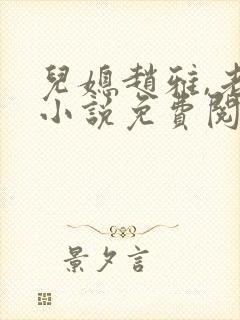 兒媳趙雅,老
小說免費閱
景夕言